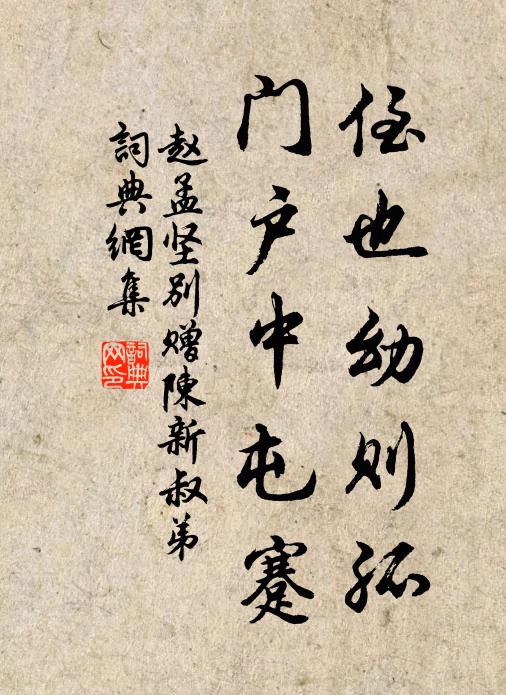 侄也幼则孤
门户中屯蹇
赵孟坚别赠陳新叔弟
詞典網集
詞典网印